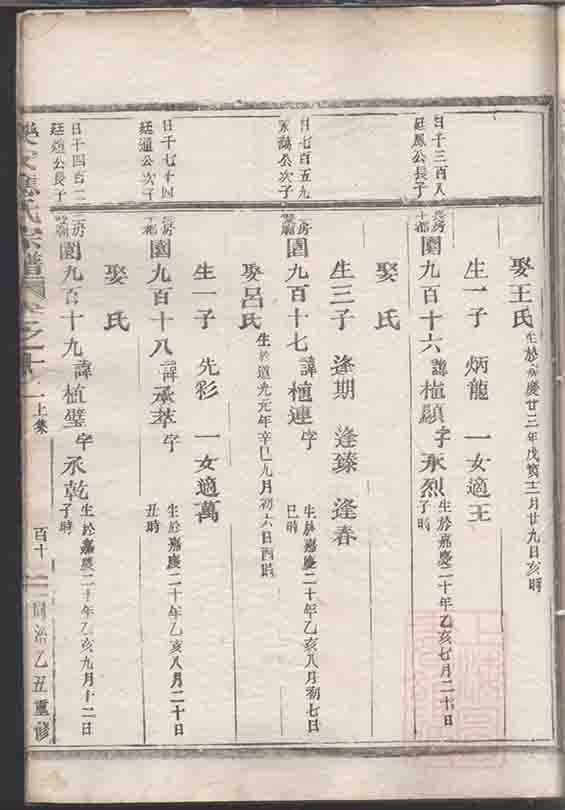 娶王氏 生於嘉慶廿三年戊寅十二月廿九日亥時
生一子 炳龍 一女適王
日千三百八
廷鳳公長子
園九百十六 諱植顯 字承烈 生於嘉慶二十年乙亥七月二十日子時
娶 氏
生三子 逢期 逢臻 逢春
日七百五九
公次子
園九百十七 諱植連 字 生於嘉慶二十年乙亥八月初七日巳時
娶呂氏 生於道光元年辛巳九月初六日酉時
生一子 先彩 一女適萬
日千七十四
廷通公次子
園九百十八 諱承萃 字 生於嘉慶二十年乙亥八月二十日丑時
娶 氏
日千四百二
廷 公長子
園九百十九 諱植璧 字承乾 生於嘉慶二十年乙亥九月十二日子時
應氏宗譜 上集 百十 同治乙丑重修